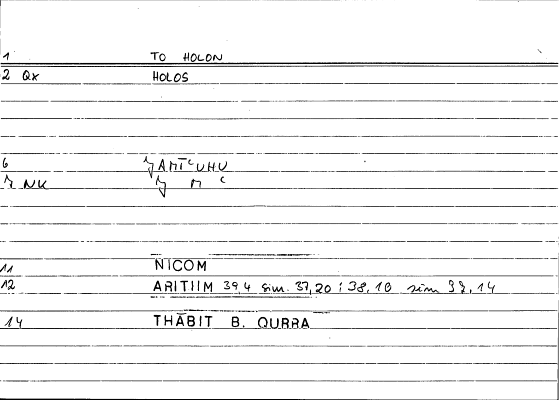 1 TO HOLON
2 Qx HOLOS
6 ǧAMĪʿUHU
7 NK ǧ M ʿ
11 NICOM
12 ARITIIM 39,4 sim. 37,20; 38,10 sim
14 THĀBIT B. QURRA